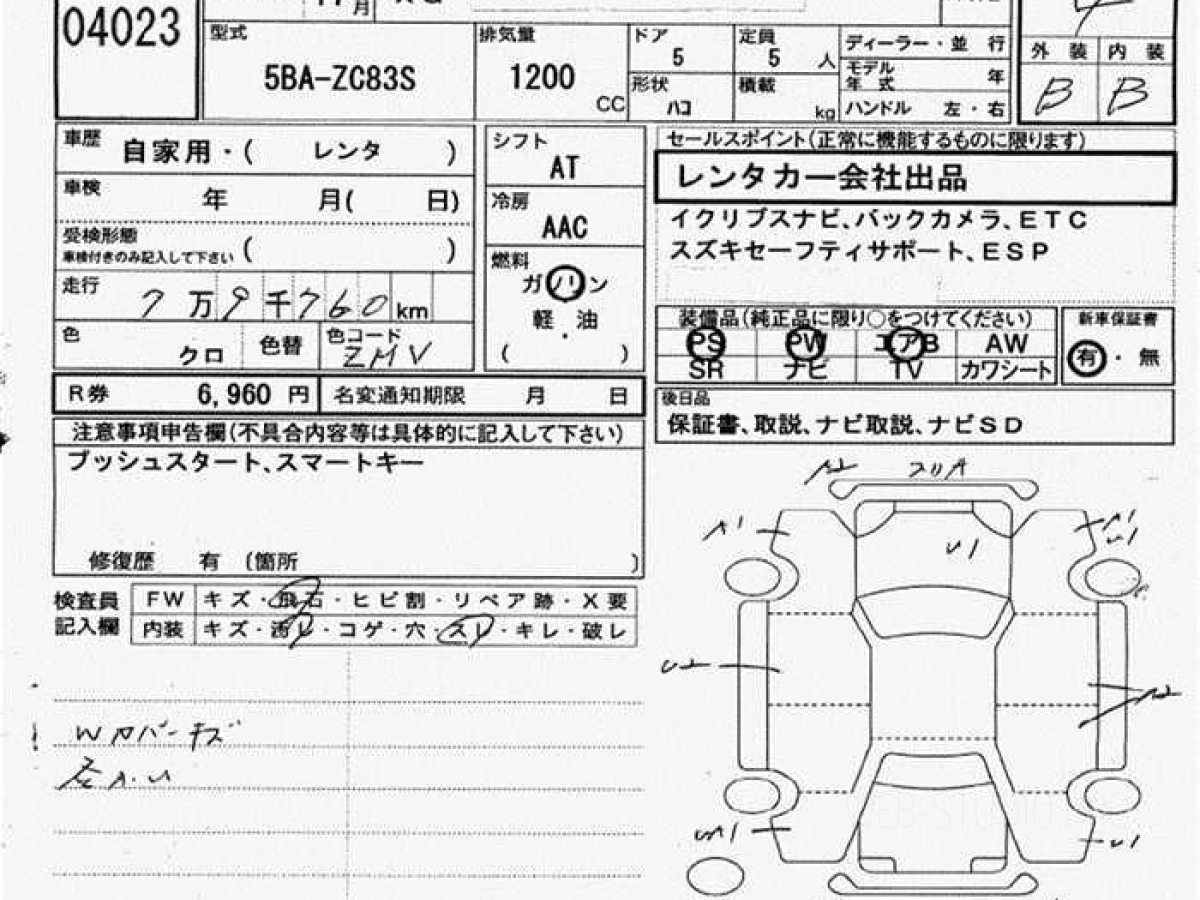 04023
月
型式
5BA-ZC83S
排気量
1200
CC
ドア
5
定員
5
人
形状
ハコ
積載
kg
ディーラー・並 行
モデル年式 年
ハンドル 左・右
4
外 装 内 装
B B
車歴
自家用・( レンタ )
車検
年 月( 日)
受検形態
車検付きのみ記入して下さい ( )
走行
7 万 9 千 760 km
色
クロ
色替
色コード
ZMV
シフト
AT
冷房
AAC
燃料
ガソリン
軽 . 油
( )
セールスポイント(正常に機能するものに限ります)
レンタカー会社出品
イクリプスナビ、バックカメラ、ETC
スズキセーフティサポート、ESP
装備品(純正品に限り○をつけてください)
PS PW エアB AW
SR ナビ TV カワシート
新車保証書
有・無
R券 6,960 円
名変通知期限 月 日
後日品
保証書、取説、ナビ取説、ナビSD
注意事項申告欄(不具合内容等は具体的に記入して下さい)
プッシュスタート、スマートキー
修復歴 有 (箇所 )
検査員
記入欄
FW キズ・飛石・ヒビ割・リペア跡・X要
内装 キズ・汚レ・コゲ・穴・スレ・キレ・破レ
Wカバーキズ
各A.U
A2 スリA
A1
A1
U1
U1
U2
A2
UA1
U1